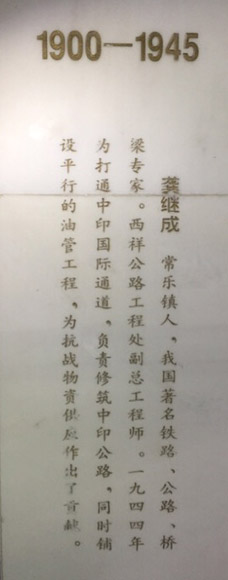 1900—1945
龚继成 常乐镇人，我国著名铁路、公路、桥
梁专家。西祥公路工程处副总工程师。一九四四年
为打通中印国际通道，负责修筑中印公路，同时铺
设平行的油管工程，为抗战物资供应作出了贡献。